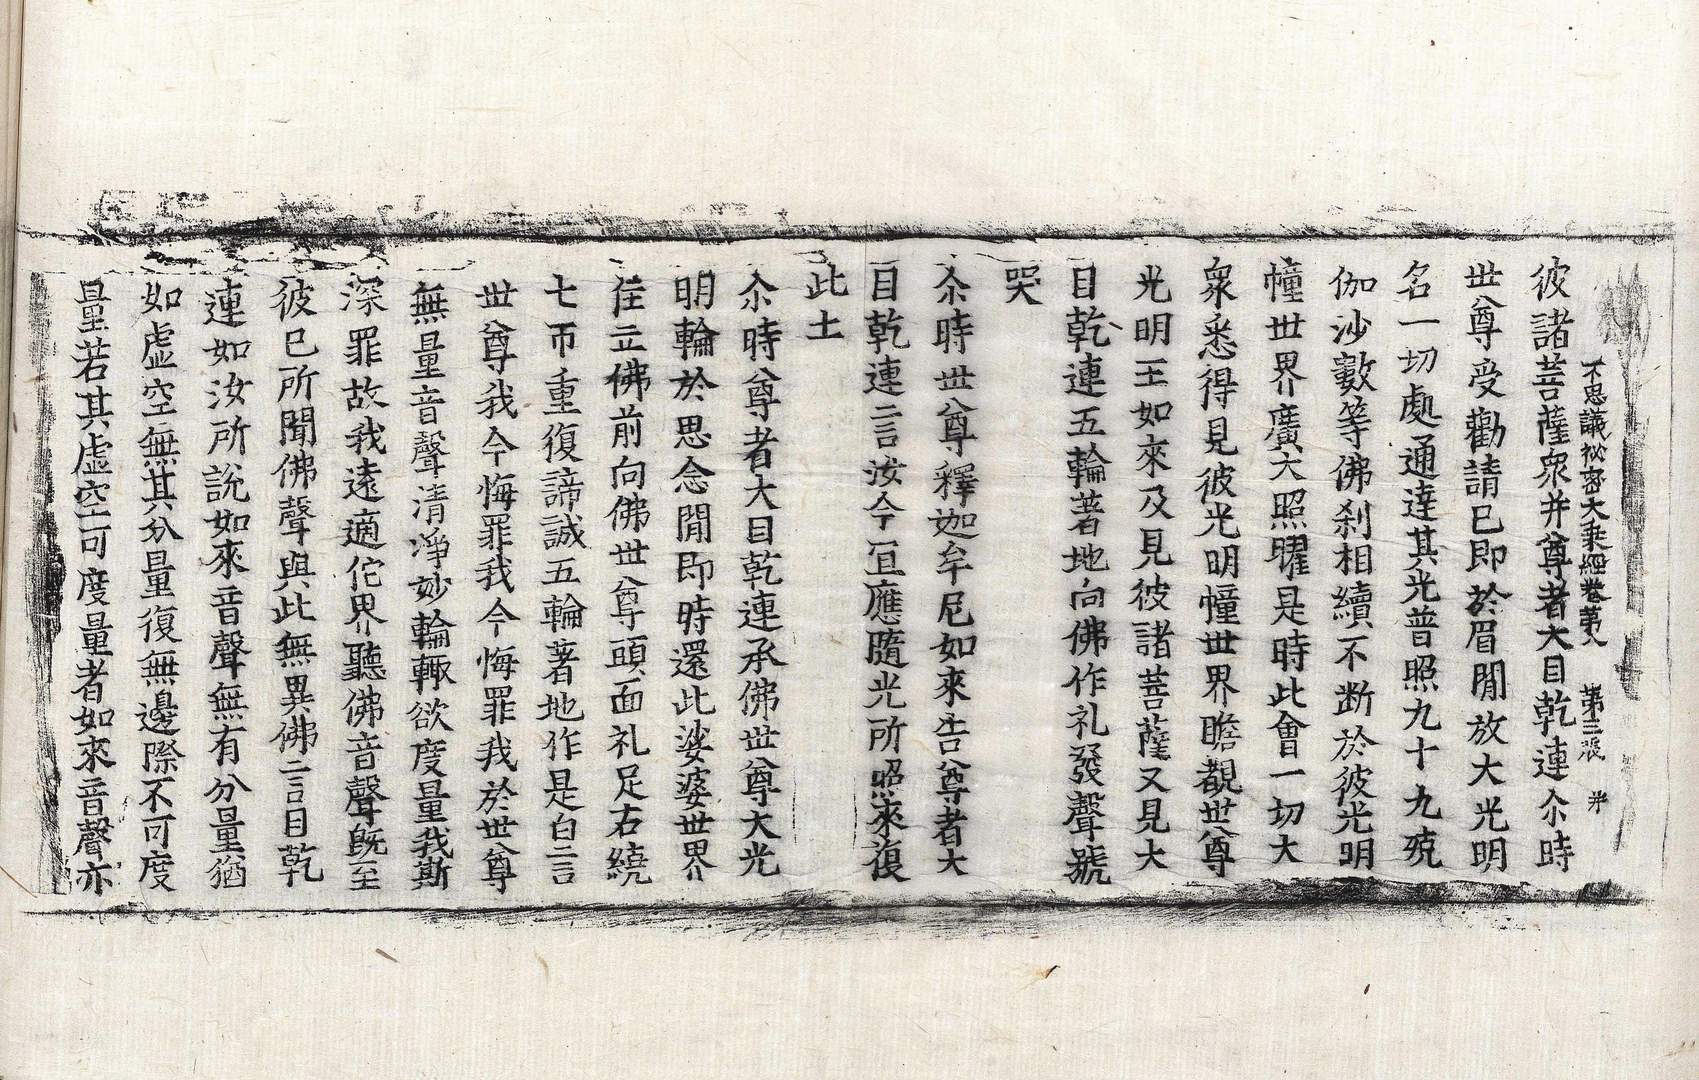 不思議祕密大乘經卷第八　第三張　丼
彼諸菩薩衆并尊者大目乾連尒時
世尊受勸請已即於眉閒放大光明
名一切處通達其光普照九十九殑
伽沙數等佛刹相續不斷於彼光明
幢世界廣大照曜是時此會一切大
衆悉得見彼光明幢世界瞻覩世尊
光明王如來及見彼諸菩薩又見大
目乾連五輪著地向佛作礼發聲號
哭
尒時世尊釋迦牟尼如來告尊者大
目乾連言汝今宜應隨光所照來復
此土
尒時尊者大目乾連承佛世尊大光
明輪於思念閒即時還此娑婆世界
住立佛前向佛世尊頭面礼足右繞
七帀重復諦誠五輪著地作是白言
世尊我今悔罪我今悔罪我於世尊
無量音聲清淨妙輪輒欲度量我斯
深罪故我遠適佗界聽佛音聲旣至
彼已所聞佛聲與此無異佛言目乾
連如汝所說如來音聲無有分量猶
如虛空無其分量復無邊際不可度
量若其虛空可度量者如來音聲亦